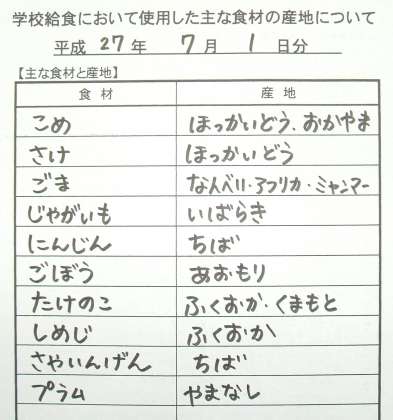 学校給食において使用した主な食材の産地について
平成 27 年 7 月 1 日分
【主な食材と産地】
食材 産地
こめ ほっかいどう、おかやま
さけ ほっかいどう
ごま なんべい・アフリカ・ミャンマー
じゃがいも いばらき
にんじん ちば
ごぼう あおもり
たけのこ ふくおか・くまもと
しめじ ふくおか
さやいんげん ちば
プラム やまなし